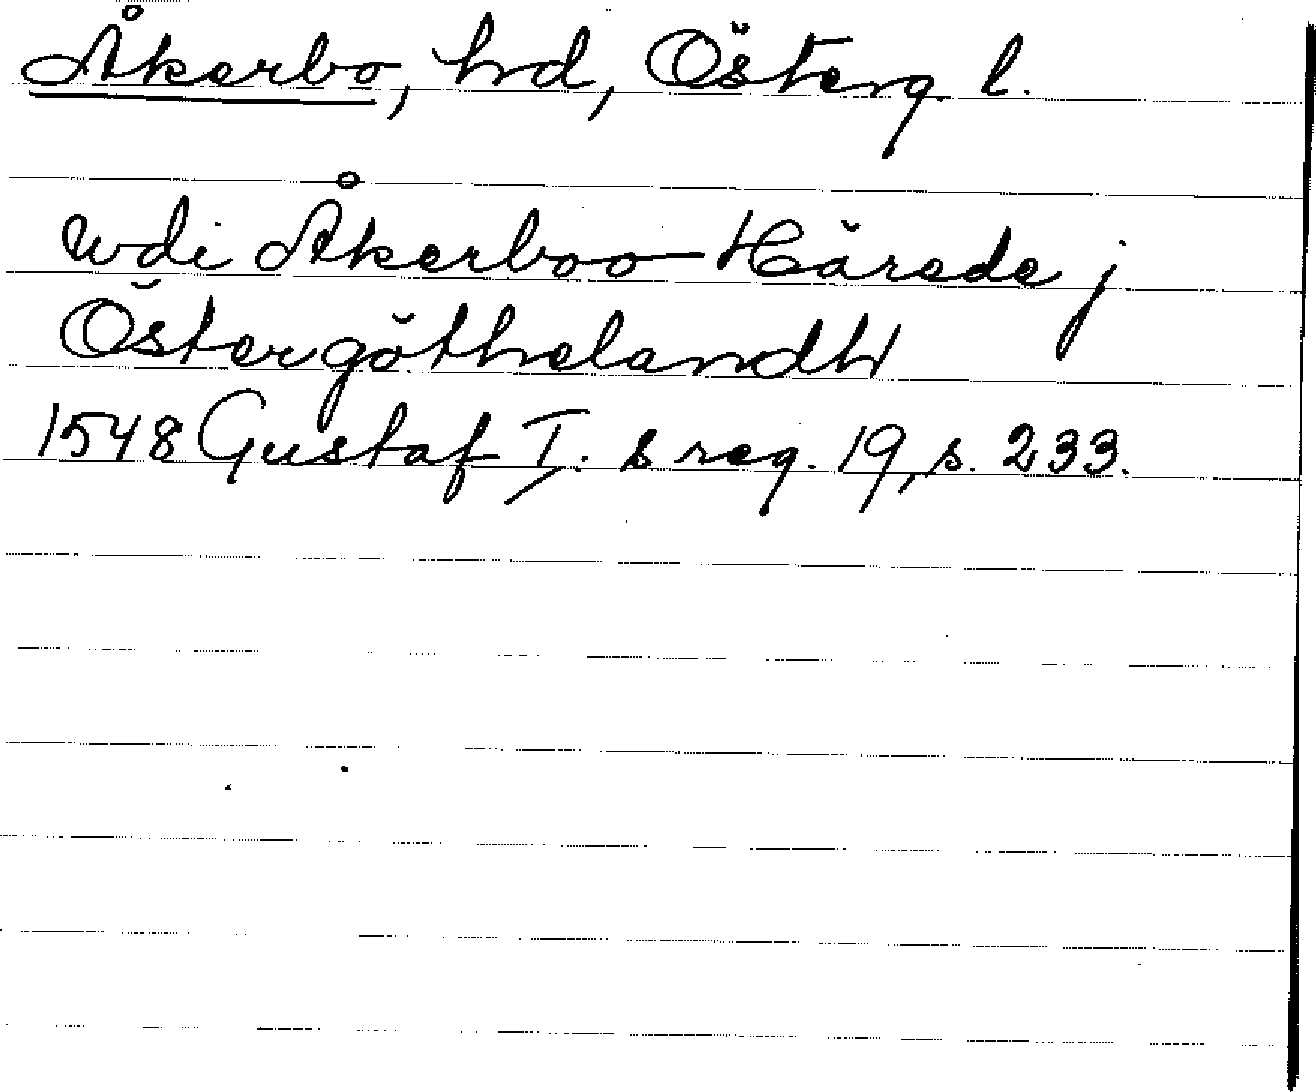 Åkerbo, hd, Österg. l.
wdi Åkerboo Härede j
Östergöthelandh
1548 Gustaf I:s reg. 19, s. 233.